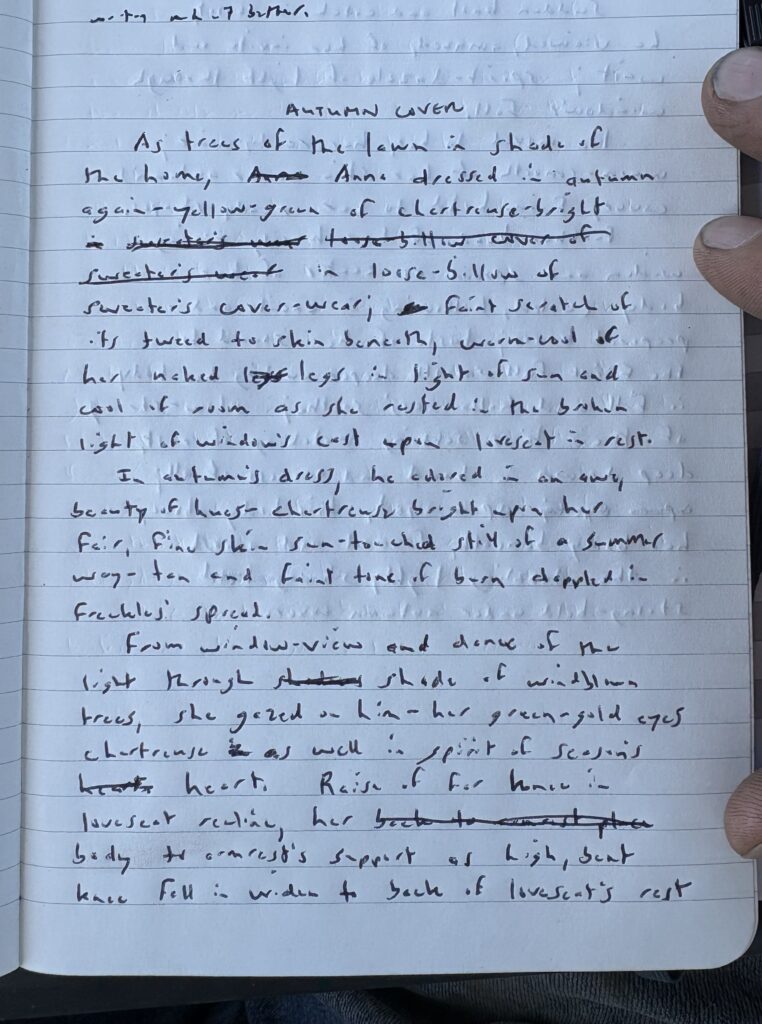 AUTUMN COVER
As trees of the lawn in shade of
the home, Anna Anna dressed in autumn
again-yellow-green of chartreuse-bright
in sweater's wear loose-billow cover of
sweater's wear in loose-billow of
sweater's cover-wear; faint scratch of
its tweed to skin beneath, warm-cool of
her naked legs legs in light of sun and
cool of room as she rested in the broken
light of window's cast upon loveseat in rest.
In autumn's dress, he adored in an awe,
beauty of hues- chartreuse bright upon her
fair, fine skin sun-touched still of a summer
way- tan and faint tone of burn dappled in
freckles' spread.
From window-view and dance of the
light through shade of windblown
trees, she gazed on him- her green-gold eyes
chartreuse as well in spirit of season's
heart. heart. Raise of far knee in
loveseat recline, her back to armrest place
body to armrest's support as high, bent
knee fell in widen to back of loveseat's rest